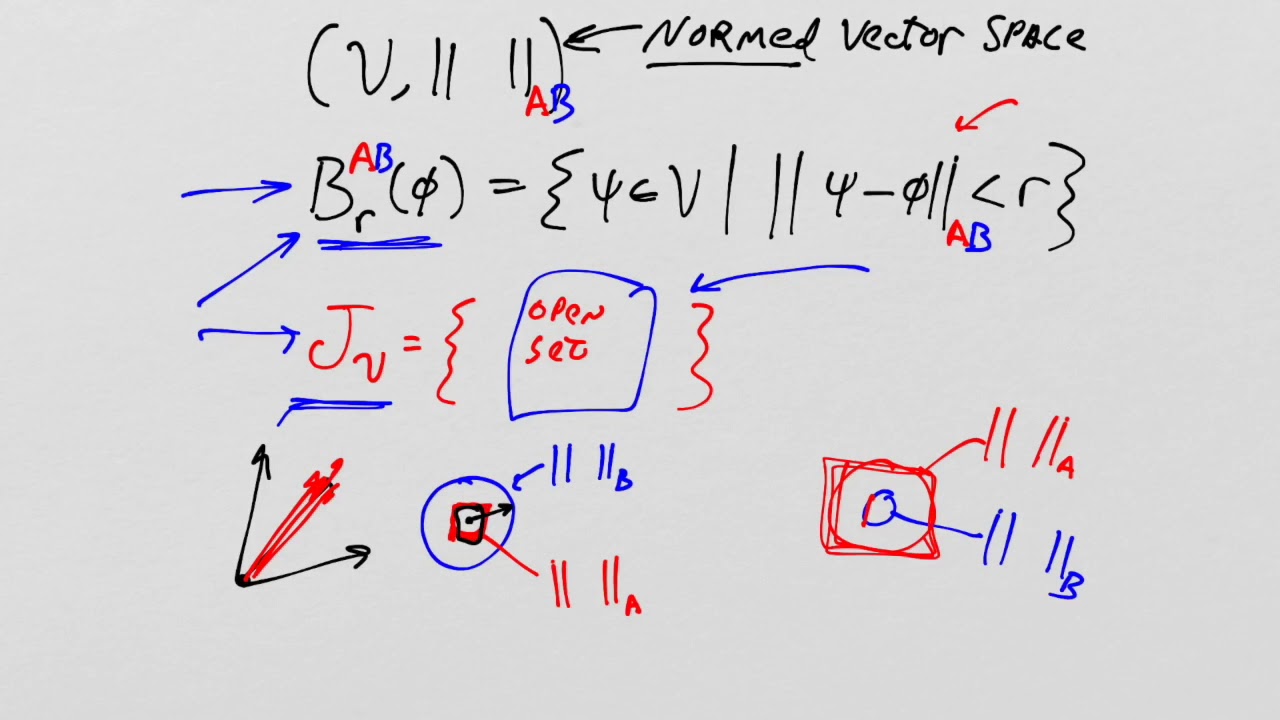 (V, || ||)_AB ← NORMED VECTOR SPACE
B_r^AB(φ) = {ψ ∈ V | ||ψ − φ||_AB < r}
J_V = { OPEN SET }
|| ||_B
|| ||_A
|| ||_A
|| ||_B